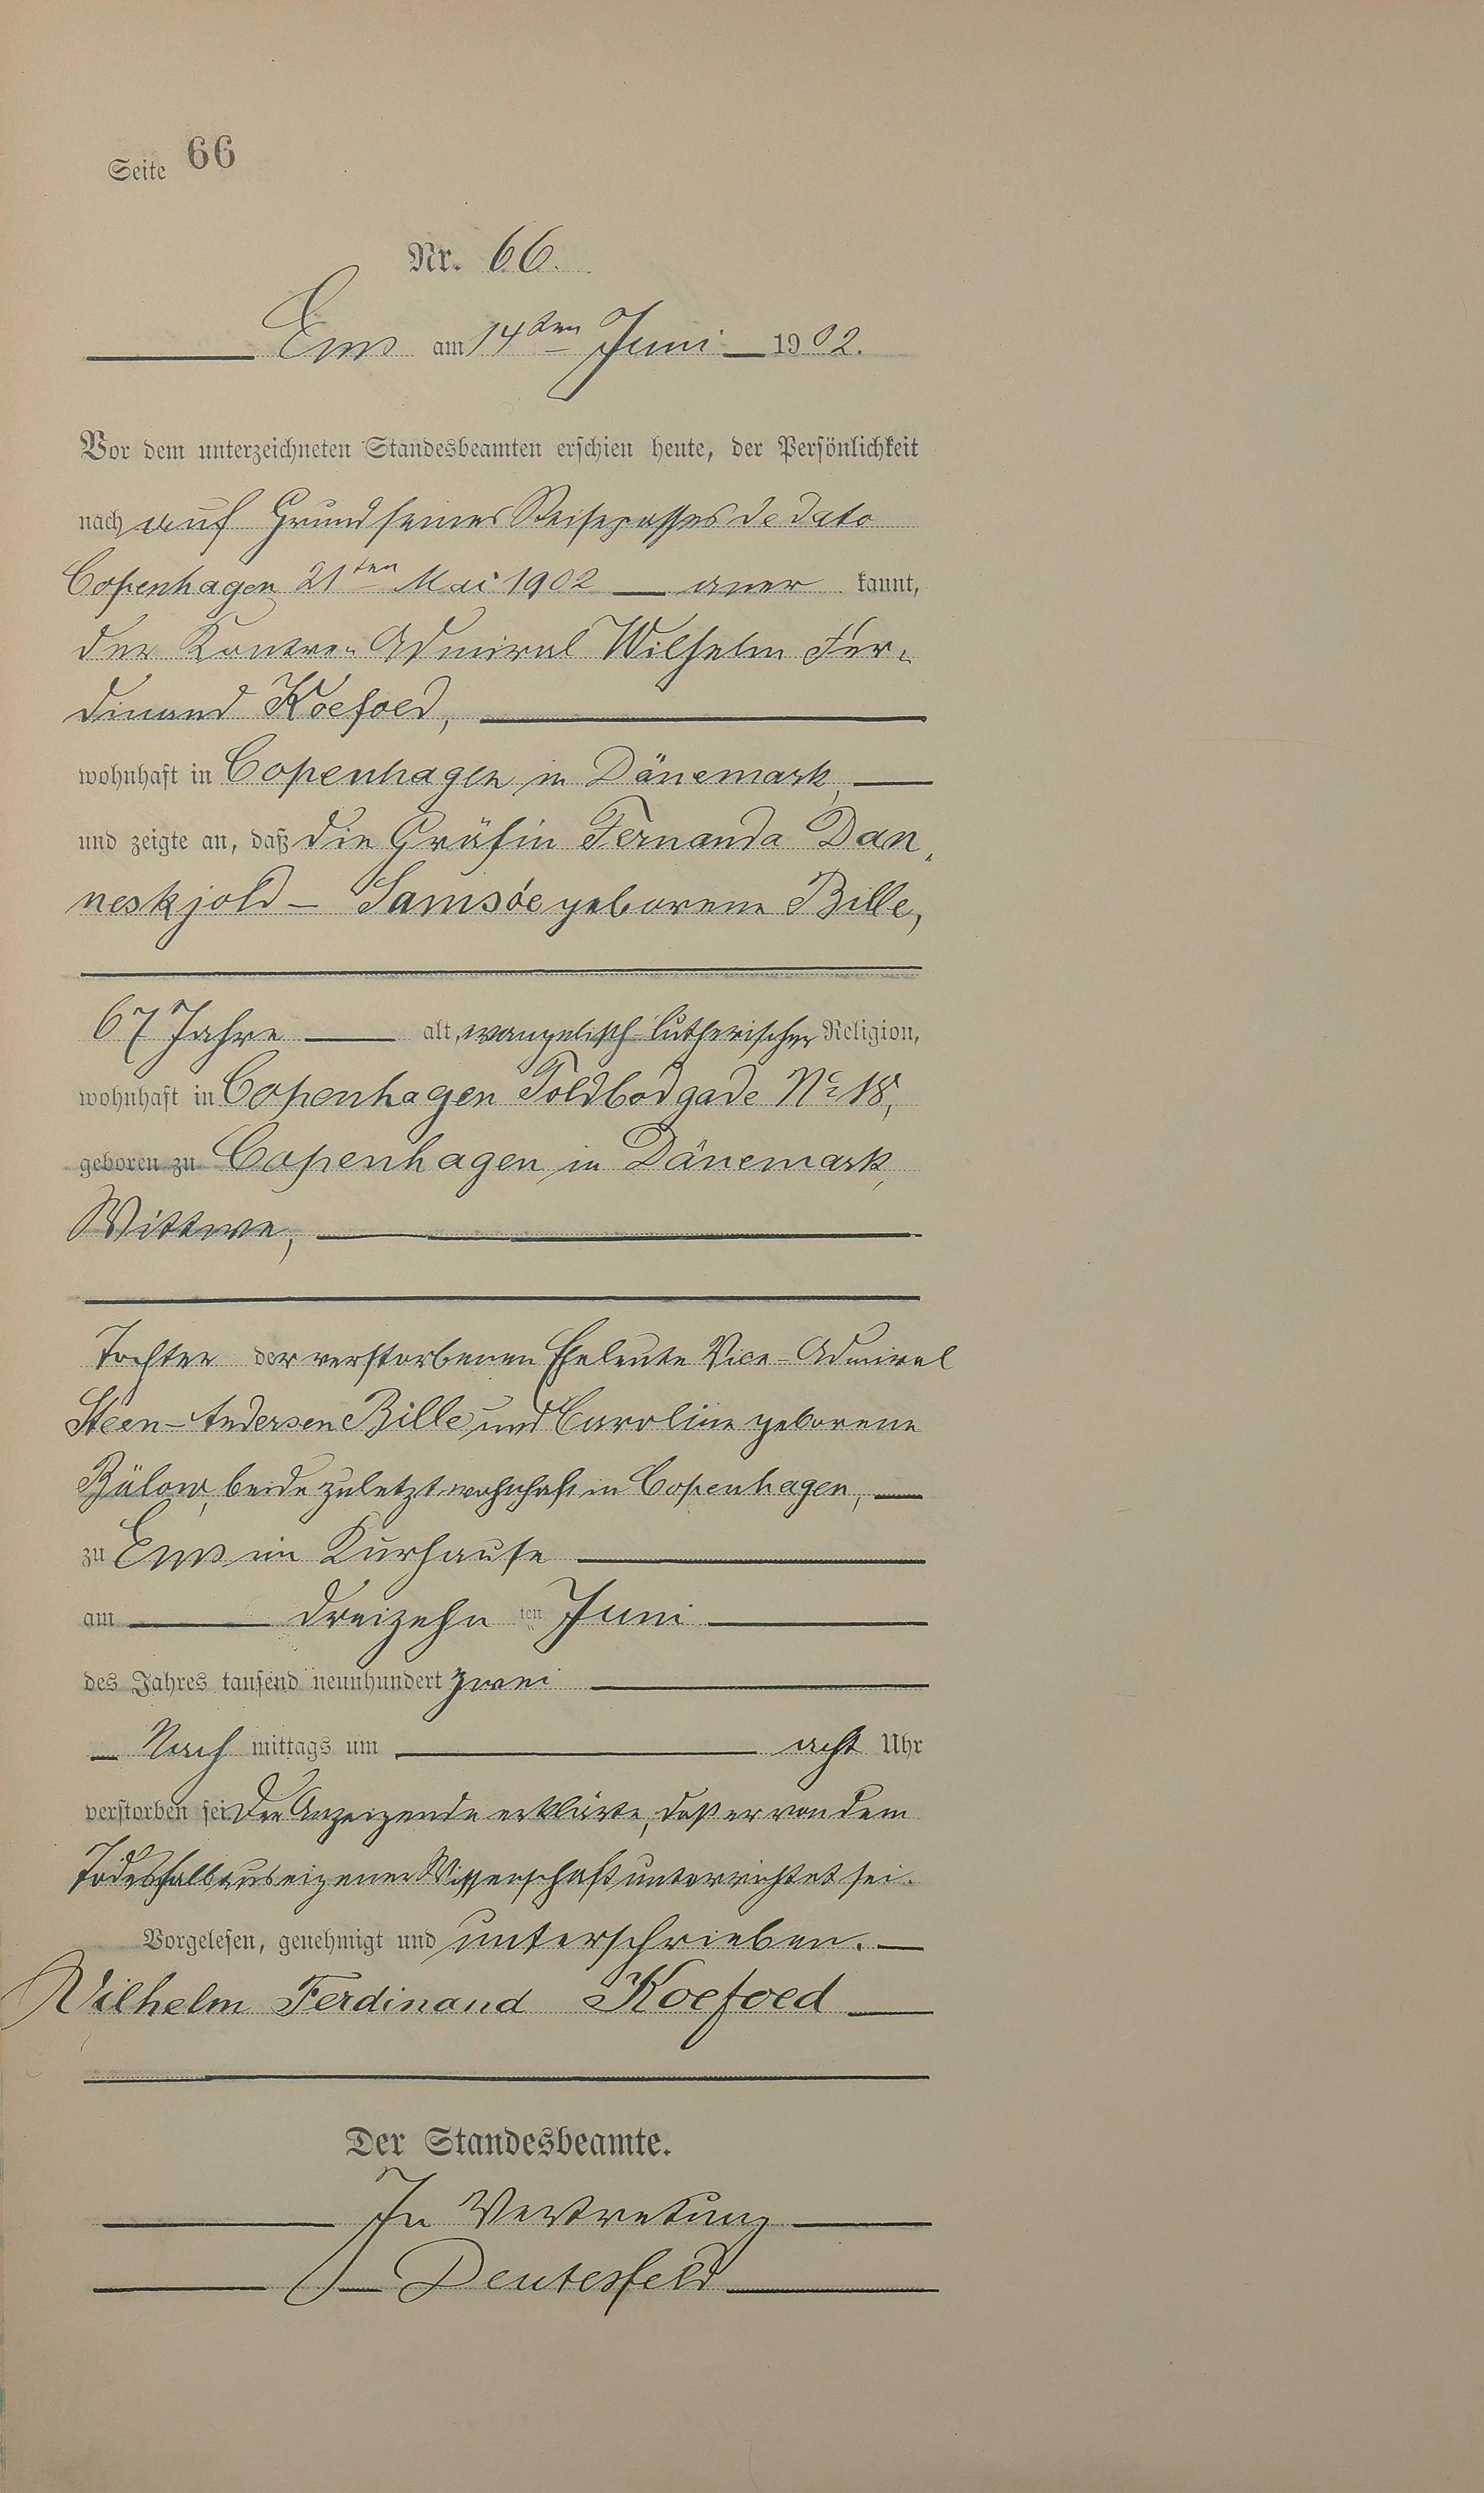 Seite 66
Nr. 66.
Ems am 14ten Juni 1902.
Vor dem unterzeichneten Standesbeamten erschien heute, der Persönlichkeit
nach auf Grund seines Reisepasses de dato
Copenhagen 21ten Mai 1902 aner kannt,
der Kontre-Admiral Wilhelm Fer-
dinand Koefoed,
wohnhaft in Copenhagen in Dänemark,
und zeigte an, daß die Gräfin Fernanda Dan-
neskjold - Samsöe geborene Bille,
67 Jahre alt, evangelisch-lutherischer Religion,
wohnhaft in Copenhagen Toldbodgade No 18,
geboren zu Copenhagen in Dänemark,
Wittwe,
Tochter der verstorbenen Eheleute Vice-Admiral
Steen-Andersen Bille und Caroline geborene
Bülow, beide zuletzt wohnhaft in Copenhagen,
zu Ems im Kurhause
am dreizehn ten Juni
des Jahres tausend neunhundert zwei
Nach mittags um acht Uhr
verstorben sei. Der Anzeigende erklärte, daß er von dem
Todesfall aus eigener Wissenschaft unterrichtet sei.
Vorgelesen, genehmigt und unterschrieben.
Wilhelm Ferdinand Koefoed
Der Standesbeamte.
In Vertretung
Deutesfeld